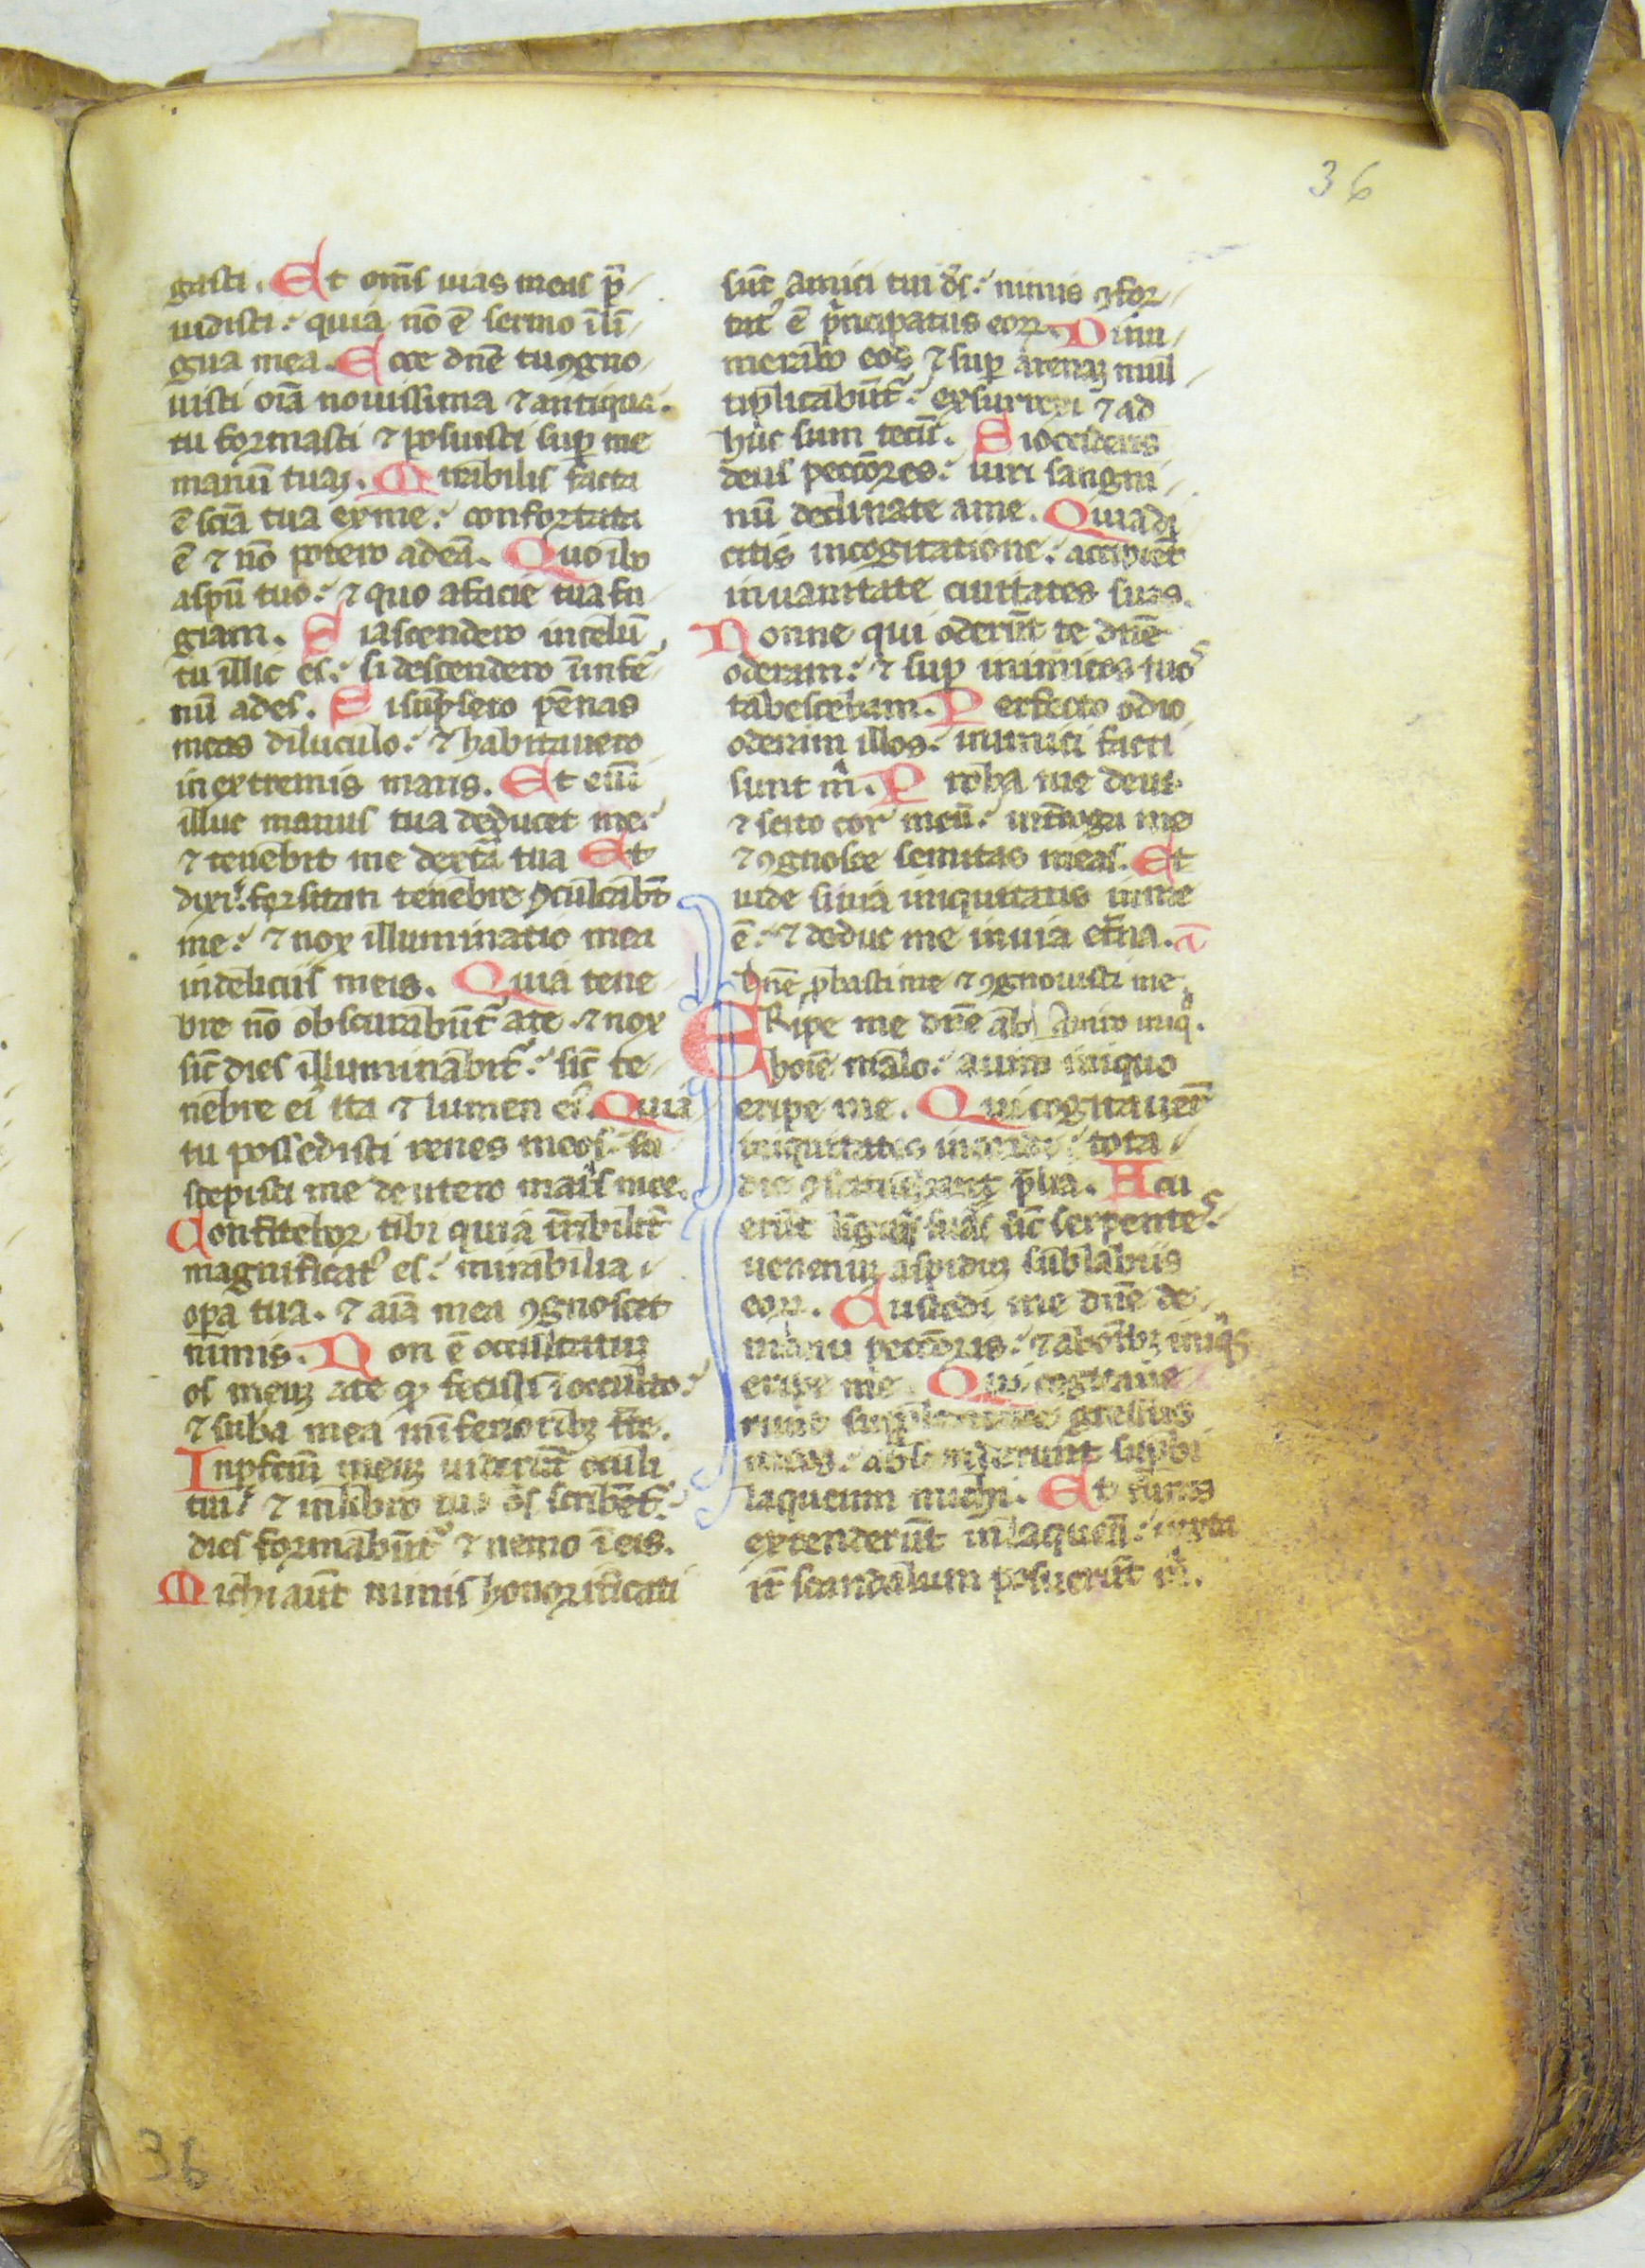 36
gasti. Et om̄s uias meas p̄
uidisti: quia nō ē sermo ī lī
gua mea. Ecce dn̄e tu ꝯgno
uisti oīa nouissima ⁊ antiqua.
tu formasti ⁊ posuisti suꝑ me
manū tuaꝫ. Mirabilis facta
ē sciā tua ex me: confortata
ē ⁊ nō potero ad eā. Quo ibo
a spū tuo: ⁊ quo a facie tua fu
giam. Si ascendero in celū
tu illic es: si descendero ī infe
nū ades. Si sūpsero pēnas
meas diluculo: ⁊ habitauero
in extremis maris. Et eni
illuc manus tua deducet me:
⁊ tenebit me dextā tua Et
dixi: forsitan tenebre ꝯculcabt̄
me: ⁊ nox illuminatio mea
in deliciis meis. Quia tene
bre nō obscurabūt᷑ a te ⁊ nox
sic̄ dies illuminabit᷑: sic̄ te
nebre ei᷒ ita ⁊ lumen ei᷒. Quia
tu possedisti renes meos: su
scepisti me de utero mat̄s mee.
Confitebor tibi quia t̄ribilit̄
magnificat᷒ es: mirabilia
oꝑa tua. ⁊ aīa mea ꝯgnoscet
nimis. Non ē occultatuꝫ
os meuꝫ a te ꝙ fecisti ī occulto:
⁊ suba mea in īferioribꝫ tr̄e.
Inpfcm̄ meuꝫ uiderūt oculi
tui: ⁊ in libro tuo ōs scribēt᷑:
dies formabūt᷑ ⁊ nemo ī eis.
Michi aūt nimis honorificati
sūt amici tui ds̄: nimis ꝯfor
tat᷒ ē pͥncipatus eoꝝ. Dinu
merabo eos ⁊ suꝑ arenaꝫ mul
tiplicabūt᷑: exsurrexi ⁊ ad
huc sum tecū. Si occideris
deus pecc̄ores: uiri sangui
nū declinate a me. Quia di
citis in cogitatione: accipiēt
in uanitate ciuitates suas.
Nonne qui oderūt te dn̄e
oderam: ⁊ suꝑ inimicos tuos
tabescebam. Perfecto odio
oderam illos: inimici facti
sunt m̄. Proba me deus
⁊ scito cor meū: int̄roga me
⁊ ꝯgnosce semitas meas. Et
uide si uia iniquitatis in me
ē: ⁊ deduc me in uia et̄na. a̅
Dn̄e ꝓbasti me ⁊ ꝯgnouisti me.
ERipe me dn̄e ab A uiro iniqͦ.
hoīe malo: a uiro iniquo
eripe me. Qui cogitauer̄
iniquitates in corde: tota
die ꝯstituebant p̄lia. Acu
erūt linguas suas sic̄ serpentes:
uenenuꝫ aspiduꝫ sub labiis
eoꝝ. Custodi me dn̄e de
manu pecc̄oris: ⁊ ab hoībꝫ iniqͥs
eripe me. Qui cogitaue
runt supplantare gressus
meos: absconderunt suꝑbi
laqueum michi. Et funes
extenderūt in laqueū: iuxta
it̄ scandalum posuerūt m̄.
36